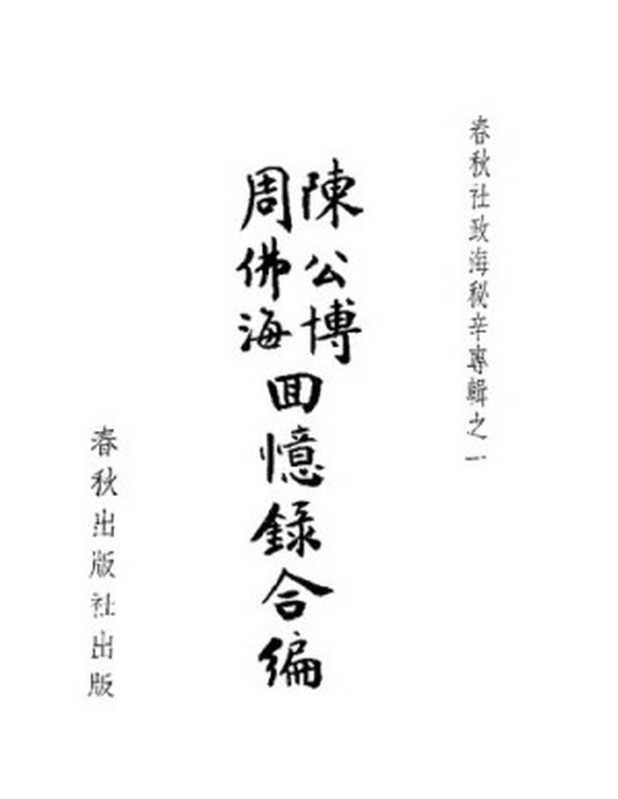 春秋社政海秘辛專輯之一
陳公博
周佛海
回憶錄合編
春秋出版社出版